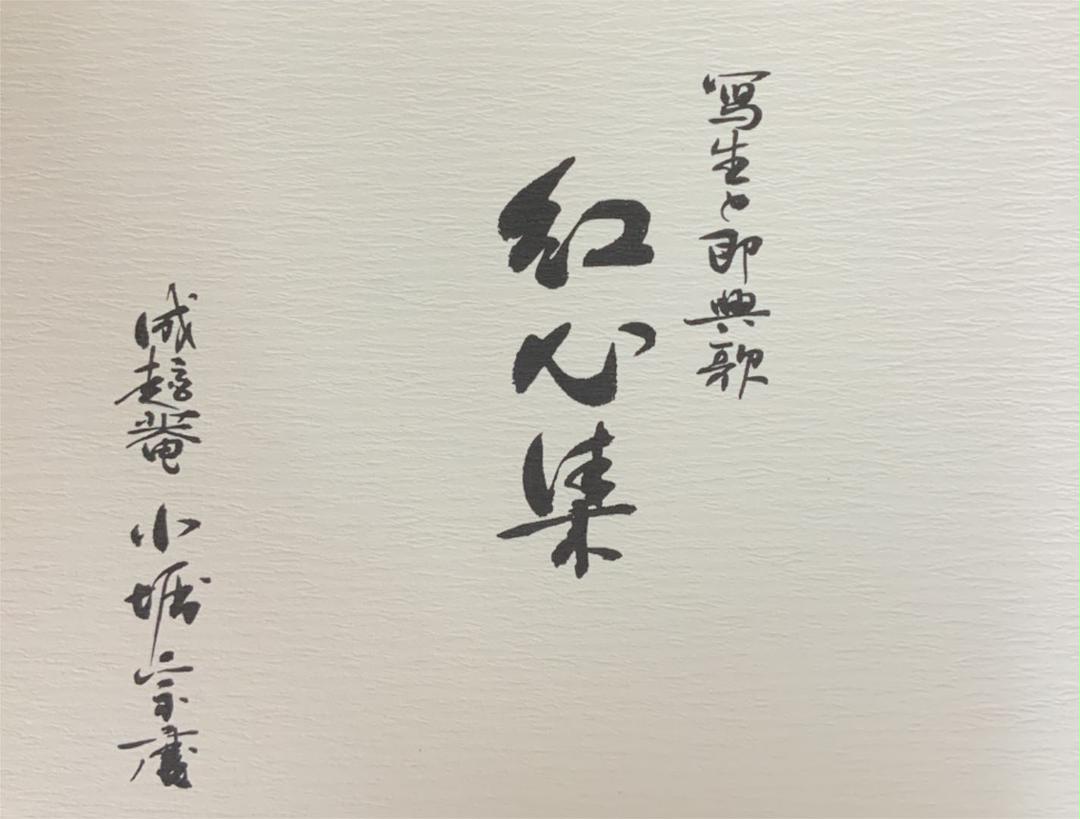 冩生と即興歌
紅心集
成趣菴 小堀宗慶